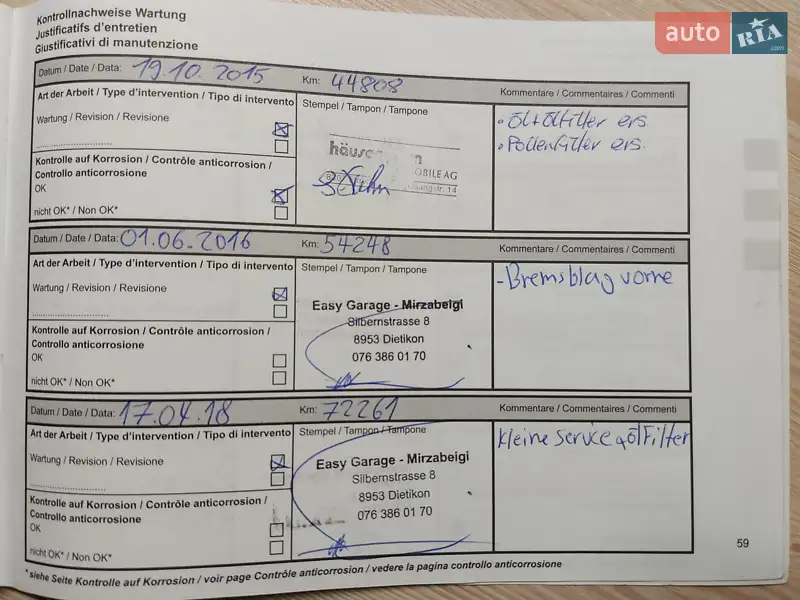 auto RIA .com
Kontrollnachweise Wartung
Justificatifs d'entretien
Giustificativi di manutenzione
Datum / Date / Data: 19.10.2015 Km: 44808 Kommentare / Commentaires / Commenti
Art der Arbeit / Type d'intervention / Tipo di intervento Stempel / Tampon / Tampone
Wartung / Revision / Revisione
• Öl+Ölfilter ers.
• Pollenfilter ers.
Kontrolle auf Korrosion / Contrôle anticorrosion /
Controllo anticorrosione
OK
nicht OK* / Non OK*
OBILE AG
Datum / Date / Data: 01.06.2016 Km: 54248 Kommentare / Commentaires / Commenti
Art der Arbeit / Type d'intervention / Tipo di intervento Stempel / Tampon / Tampone
Wartung / Revision / Revisione
- Bremsblag vorne
Easy Garage - Mirzabeigi
Silbernstrasse 8
8953 Dietikon
076 386 01 70
Kontrolle auf Korrosion / Contrôle anticorrosion /
Controllo anticorrosione
OK
nicht OK* / Non OK*
Datum / Date / Data: 17.04.18 Km: 72261 Kommentare / Commentaires / Commenti
Art der Arbeit / Type d'intervention / Tipo di intervento Stempel / Tampon / Tampone
Wartung / Revision / Revisione
kleine Service + ölFilter
Easy Garage - Mirzabeigi
Silbernstrasse 8
8953 Dietikon
076 386 01 70
Kontrolle auf Korrosion / Contrôle anticorrosion /
Controllo anticorrosione
OK
nicht OK* / Non OK*
*siehe Seite Kontrolle auf Korrosion / voir page Contrôle anticorrosion / vedere la pagina controllo anticorrosione
59